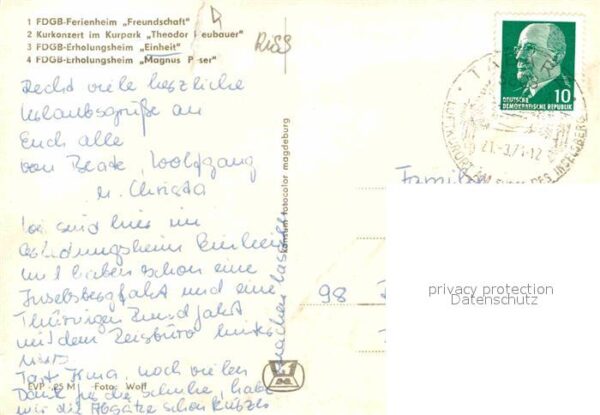 1 FDGB-Ferienheim „Freundschaft"
2 Kurkonzert im Kurpark „Theodor Neubauer"
3 FDGB-Erholungsheim „Einheit"
4 FDGB-Erholungsheim „Magnus Poser"
RISS
Recht viele herzliche
Urlaubsgrüße an
Euch alle
von Beate, Wolfgang
u. Christa
Wir sind hier im
Erholungsheim Einheit
und haben schon eine
Inselsbergfahrt und eine
Thüringen Rundfahrt
mit dem Reisebüro hinter
uns.
Tante Irma, noch vielen
Dank für die Schuhe, habe
mir die Absätze schon kürzer
machen lassen
EVP -,25 M Foto: Wolf
konsum fotocolor magdeburg
10
DEUTSCHE
DEMOKRATISCHE REPUBLIK
21.-3.71-12
DES INSELSBERG
Familie
98
privacy protection
Datenschutz